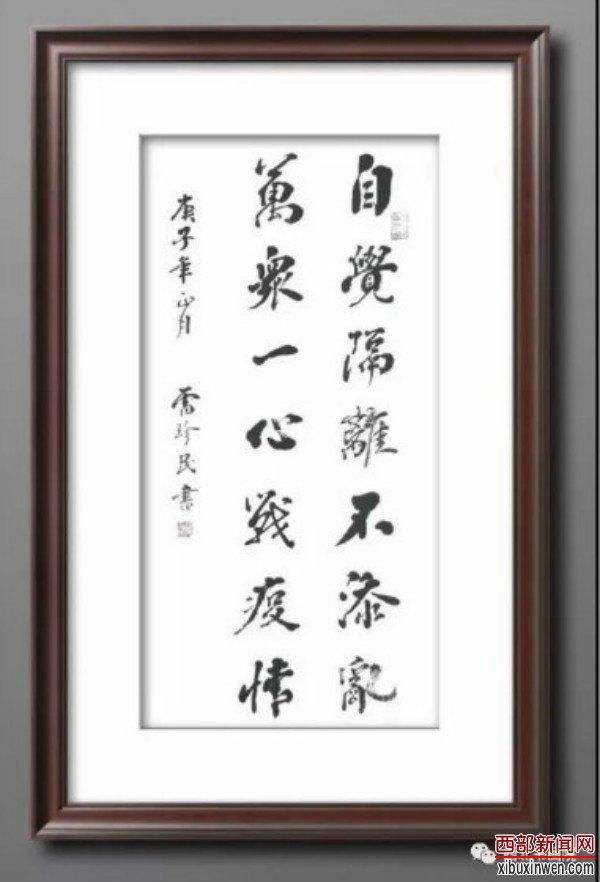 自覺隔離不添亂
萬衆一心戰疫情
庚子年正月
雷珍民書
西部新闻网
xibuxinwen.com